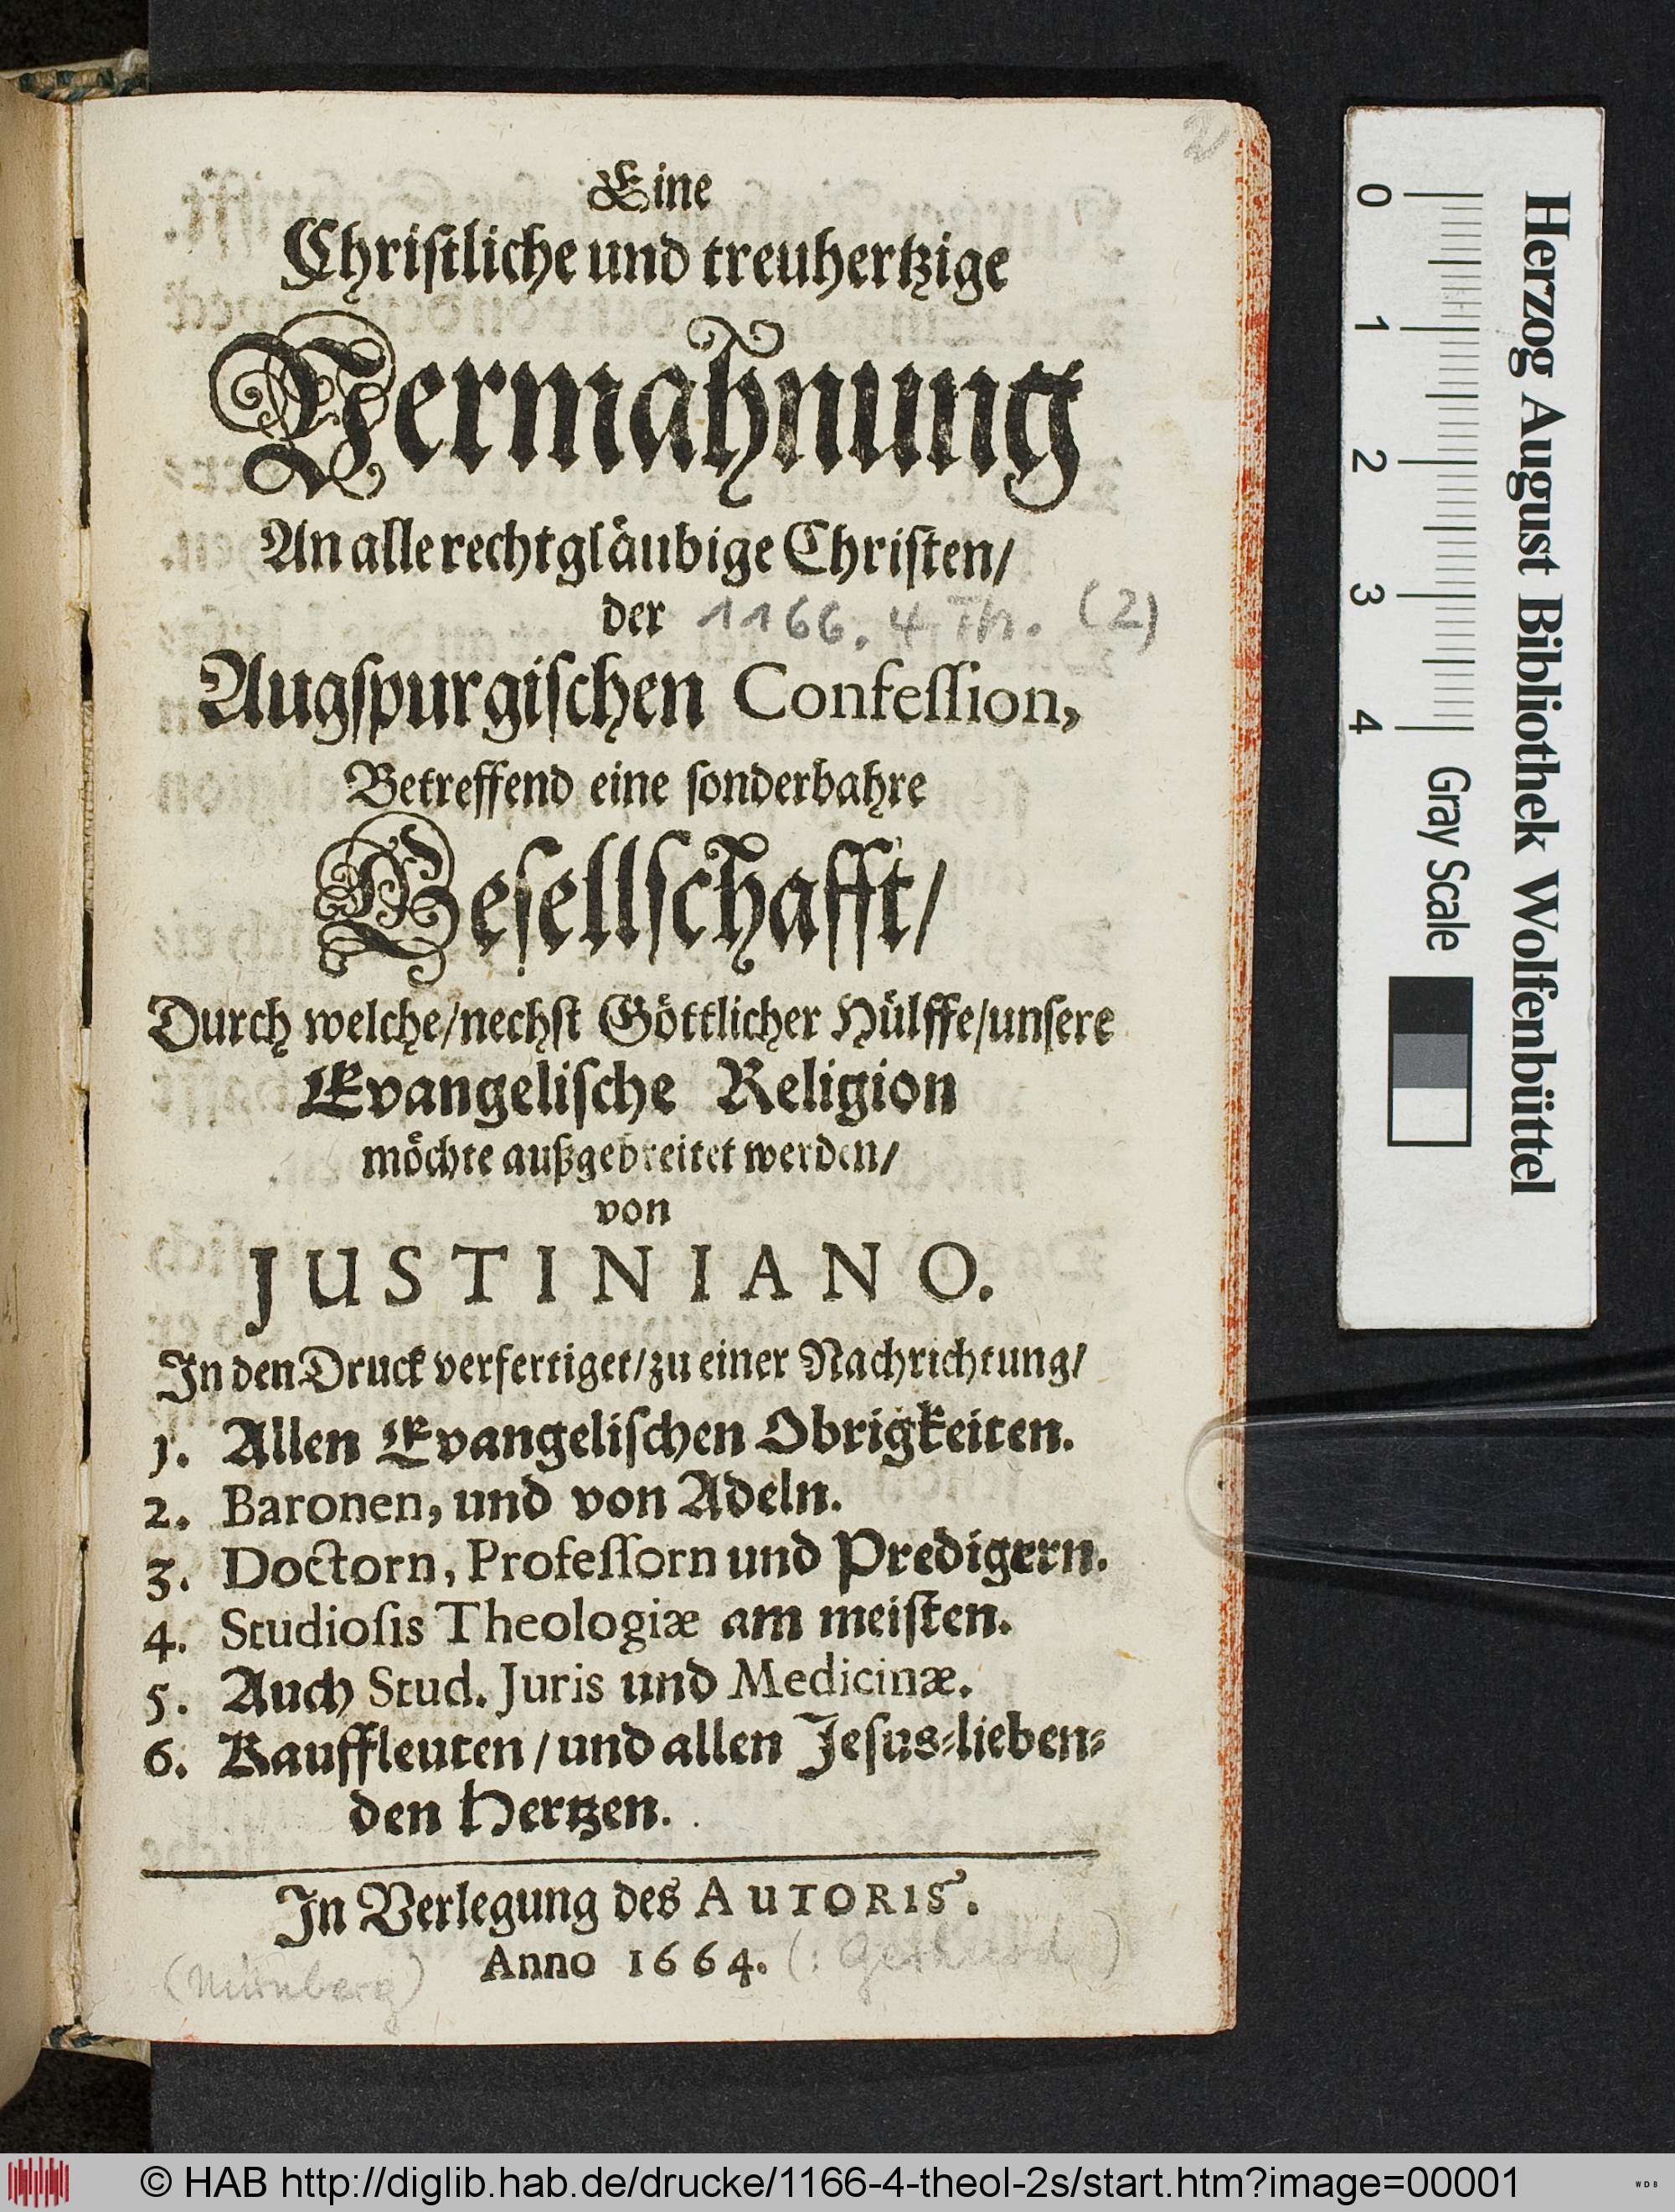 2
Eine
Chriſtliche und treuhertzige
Vermahnung
An alle rechtglåubige Chriſten/
der 1166. 4 Th. (2)
Augſpurgiſchen Confeſſion,
Betreffend eine ſonderbahre
Geſellſchafft/
Durch welche/nechſt Göttlicher Hůlffe/unſere
Evangeliſche Religion
möchte außgebreitet werden/
von
JUSTINIANO.
In den Druck verfertiget/zu einer Nachrichtung/
1. Allen Evangeliſchen Obrigkeiten.
2. Baronen, und von Adeln.
3. Doctorn, Profeſſorn und Predigern.
4. Studioſis Theologiæ am meiſten.
5. Auch Stud. Juris und Medicinæ.
6. Kauffleuten / und allen Jeſus-lieben-
den Hertzen.
In Verlegung des AUTORIS.
Anno 1664.
(Nürnberg)
Herzog August Bibliothek Wolfenbüttel
0 1 2 3 4 Gray Scale
© HAB http://diglib.hab.de/drucke/1166-4-theol-2s/start.htm?image=00001
WDB